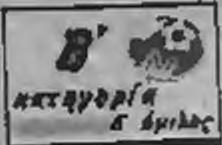 Β'
κατηγορία
δ όμιλος